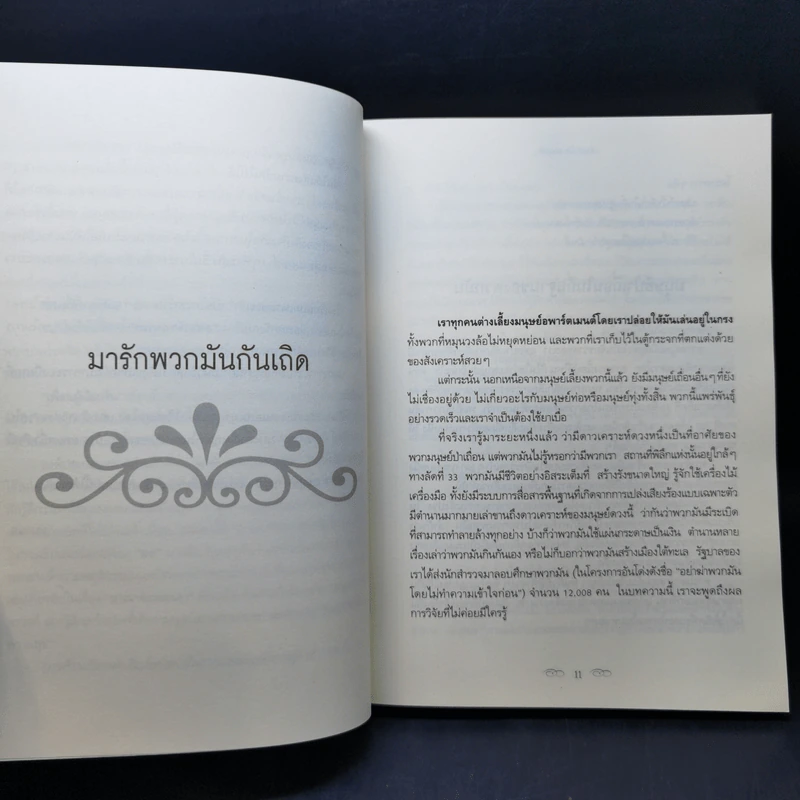 มารักพวกมันกันเถิด
เราทุกคนต่างเลี้ยงมนุษย์อพาร์ตเมนต์โดยเราปล่อยให้มันเล่นอยู่ในกรง
ทั้งพวกที่หมุนวงล้อไม่หยุดหย่อน และพวกที่เราเก็บไว้ในตู้กระจกที่ตกแต่งด้วย
ของสังเคราะห์สวยๆ
แต่กระนั้น นอกเหนือจากมนุษย์เลี้ยงพวกนี้แล้ว ยังมีมนุษย์เถื่อนอื่นๆ ที่ยัง
ไม่เชื่องอยู่ด้วย ไม่เกี่ยวอะไรกับมนุษย์ท่อหรือมนุษย์ทุ่งทั้งสิ้น พวกนี้แพร่พันธุ์
อย่างรวดเร็วและเราจำเป็นต้องใช้ยาเบื่อ
ที่จริงเรารู้มาระยะหนึ่งแล้ว ว่ามีดาวเคราะห์ดวงหนึ่งเป็นที่อาศัยของ
พวกมนุษย์ป่าเถื่อน แต่พวกมันไม่รู้หรอกว่ามีพวกเรา สถานที่พิลึกแห่งนั้นอยู่ใกล้ๆ
ทางลัดที่ 33 พวกมันมีชีวิตอย่างอิสระเต็มที่ สร้างรังขนาดใหญ่ รู้จักใช้เครื่องไม้
เครื่องมือ ทั้งยังมีระบบการสื่อสารพื้นฐานที่เกิดจากการเปล่งเสียงร้องแบบเฉพาะตัว
มีตำนานมากมายเล่าขานถึงดาวเคราะห์ของมนุษย์ดวงนี้ ว่ากันว่าพวกมันมีระเบิด
ที่สามารถทำลายล้างทุกอย่าง บ้างก็ว่าพวกมันใช้แผ่นกระดาษเป็นเงิน ตำนานหลาย
เรื่องเล่าว่าพวกมันกินกันเอง หรือไม่ก็บอกว่าพวกมันสร้างเมืองใต้ทะเล รัฐบาลของ
เราได้ส่งนักสำรวจมาลอบศึกษาพวกมัน (ในโครงการอันโด่งดังชื่อ "อย่าฆ่าพวกมัน
โดยไม่ทำความเข้าใจก่อน") จำนวน 12,008 คน ในบทความนี้ เราจะพูดถึงผล
การวิจัยที่ไม่ค่อยมีใครรู้
11